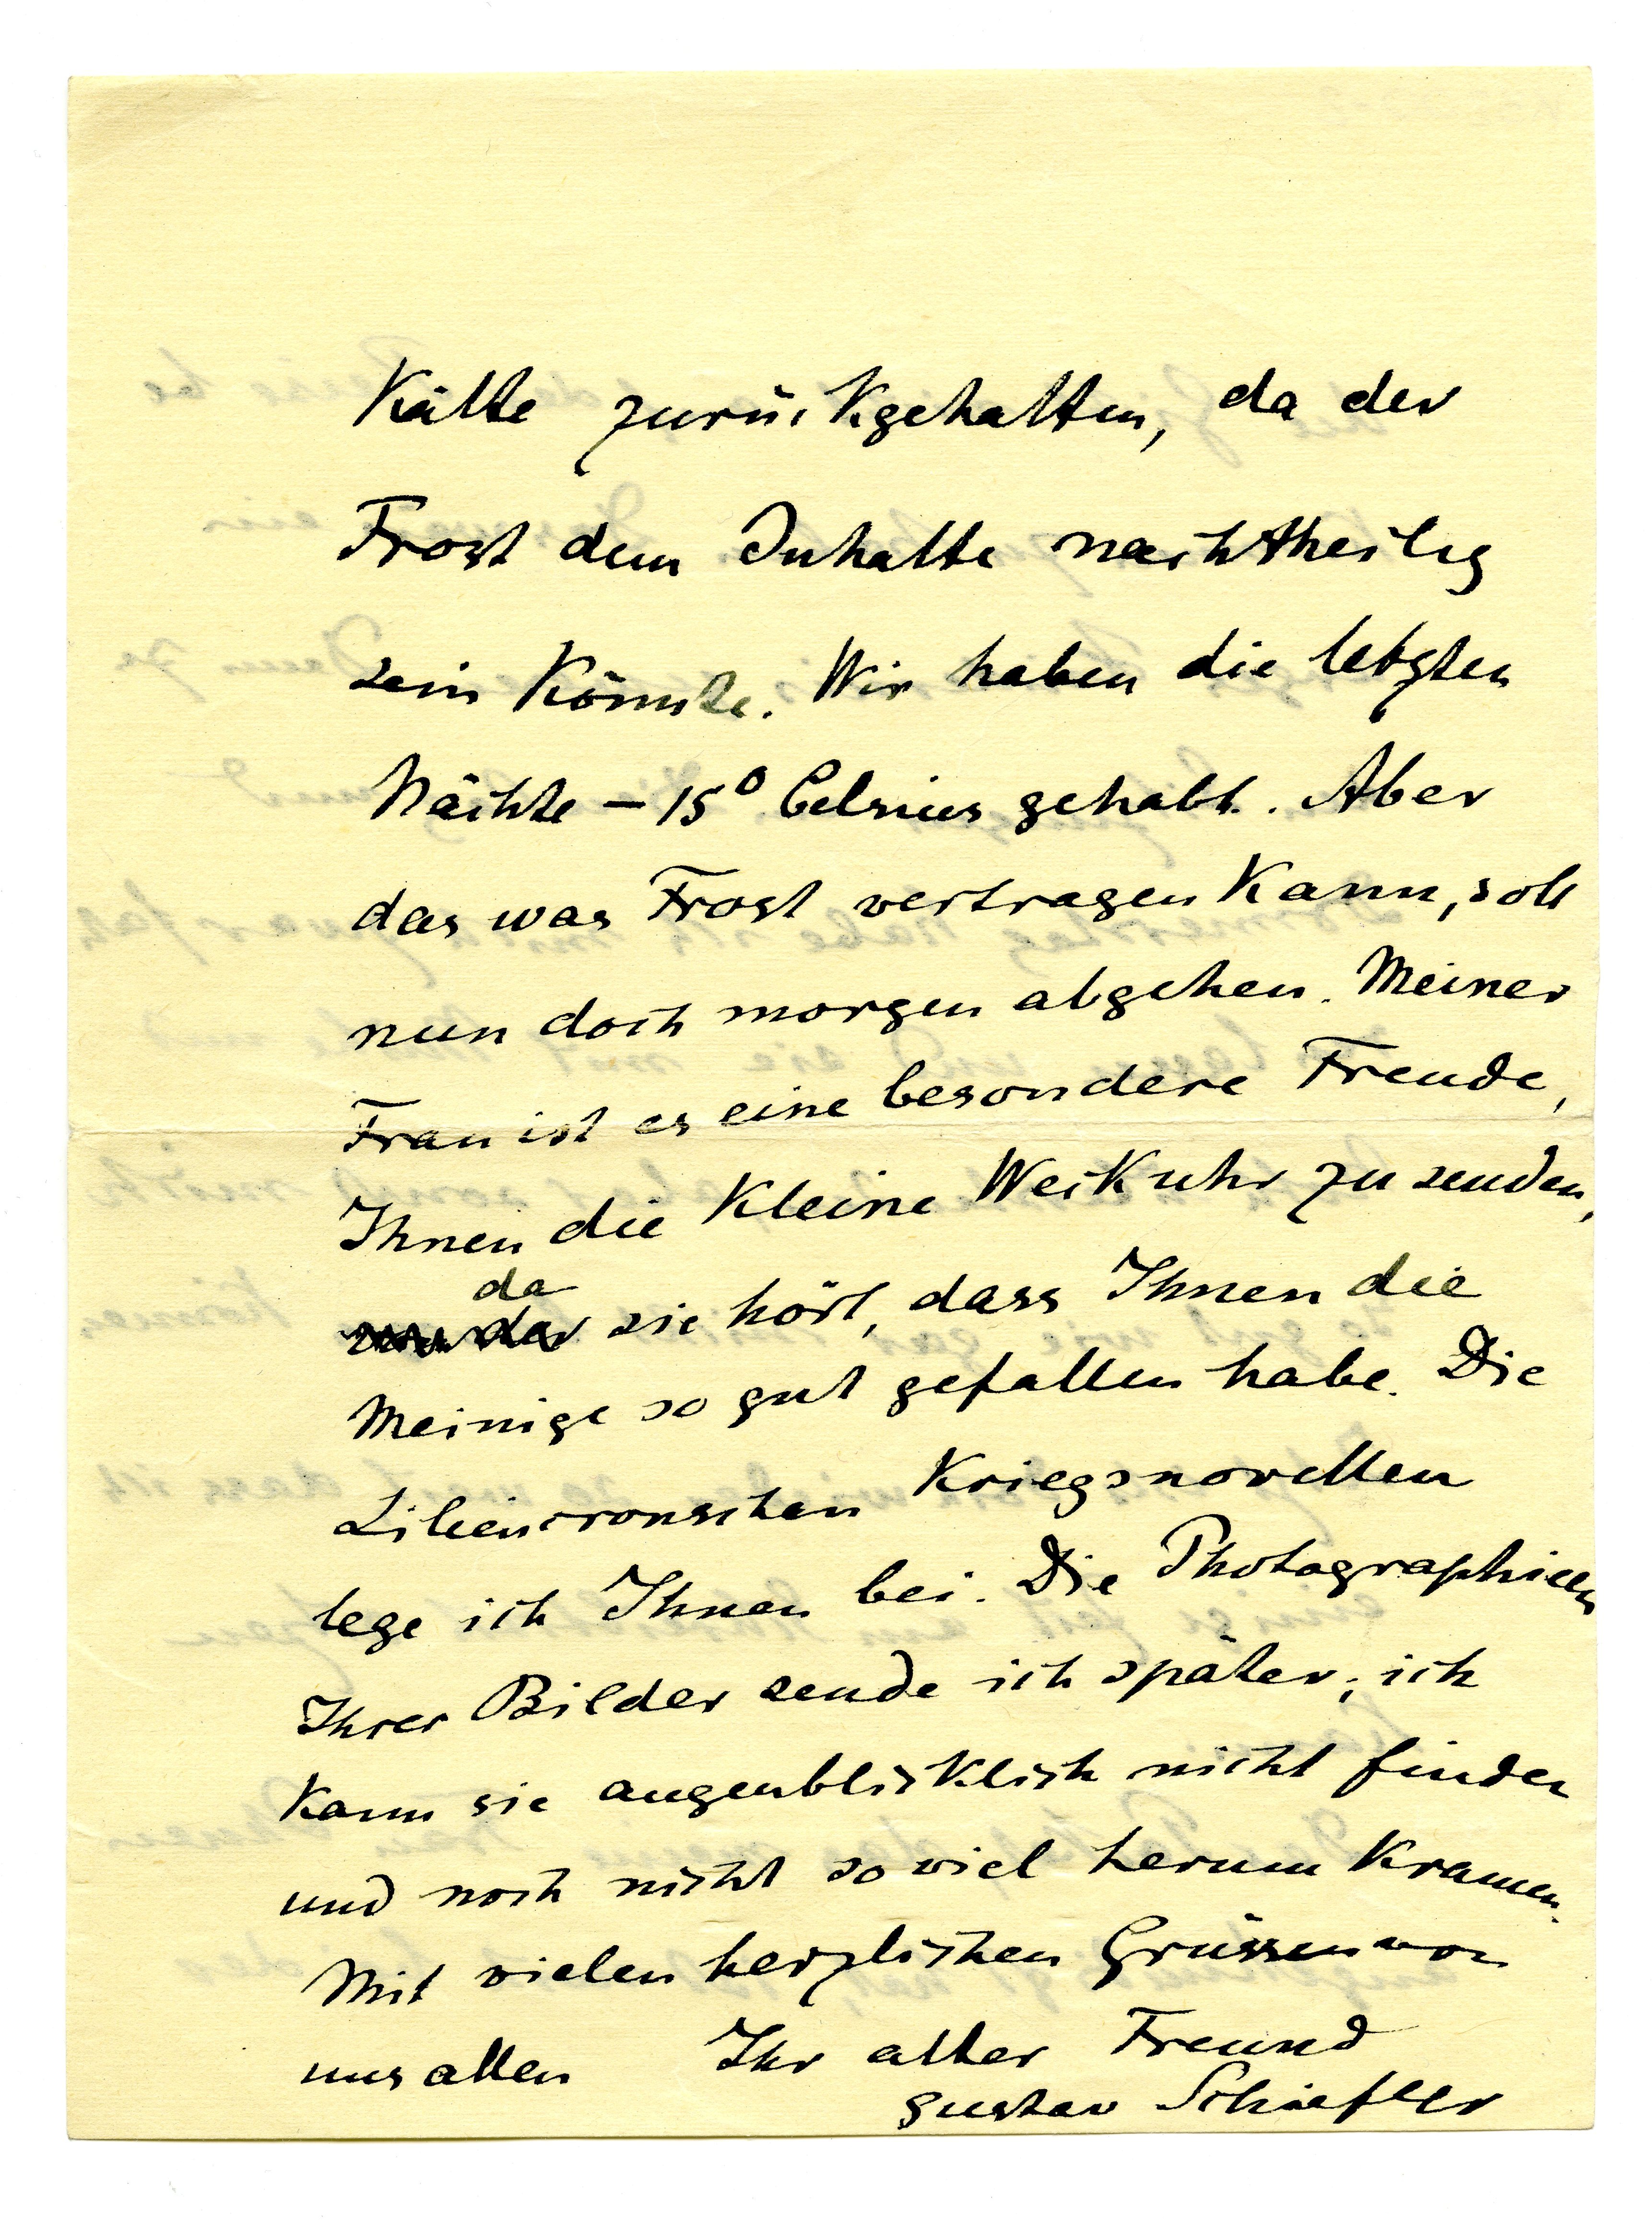 Kälte zurückgehalten, da der
Frost dem Inhalte nachtheilig
sein könnte. Wir haben die letzten
Nächte – 15° Celsius gehabt. Aber
das was Frost vertragen kann, soll
nun doch morgen abgehen. Meiner
Frau ist es eine besondere Freude,
Ihnen die kleine Weckuhr zu senden,
da
sie hört, dass Ihnen die
Meinige so gut gefallen habe. Die
Liliencronschen Kriegsnovellen
lege ich Ihnen bei. Die Photographieen
Ihrer Bilder sende ich später; ich
kann sie augenblicklich nicht finden
und noch nicht so viel herum kramen.
Mit vielen herzlichen Grüssen von
uns allen Ihr alter Freund
Gustav Schiefler